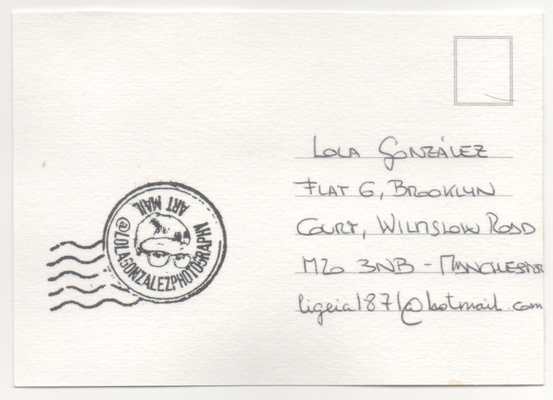 LOLA GONZÁLEZ
FLAT 6, BROOKLYN
COURT, WILMSLOW ROAD
M20 3NB - MANCHESTER
ligeia1871@hotmail.com
ART MAIL
@LOLAGONZALEZPHOTOGRAPHY